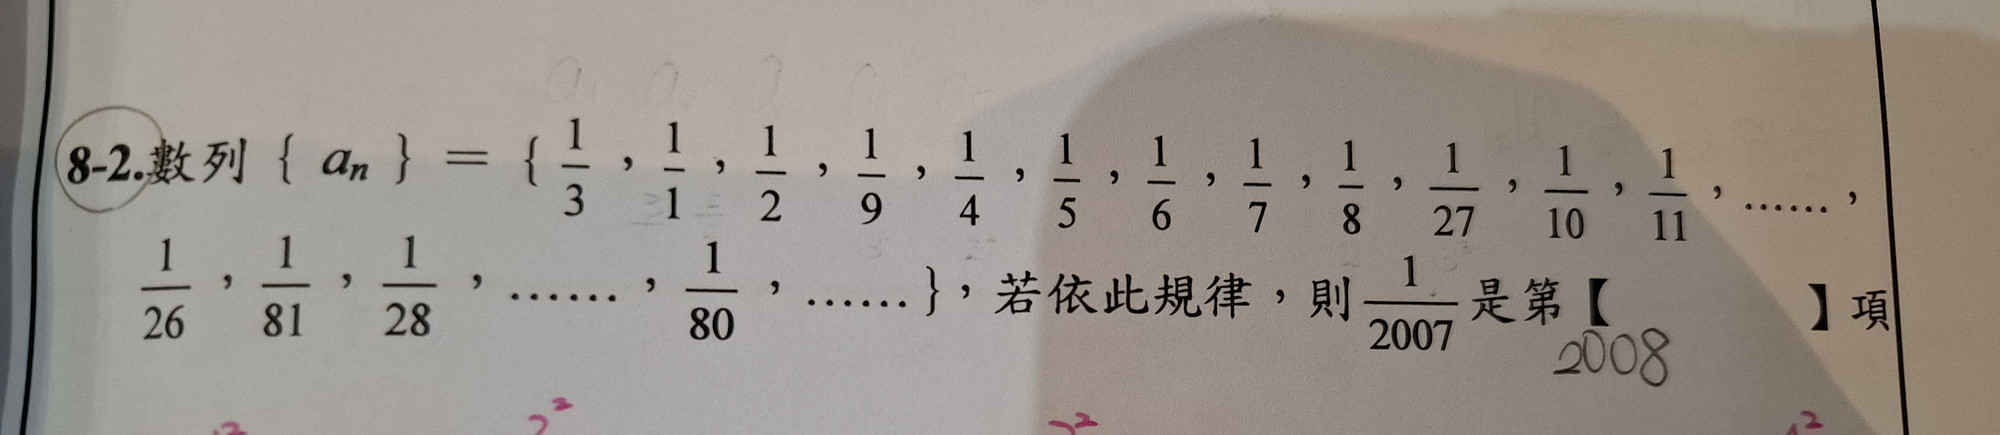 8-2.數列 { aₙ } = { 1/3 , 1/1 , 1/2 , 1/9 , 1/4 , 1/5 , 1/6 , 1/7 , 1/8 , 1/27 , 1/10 , 1/11 , …… ,
1/26 , 1/81 , 1/28 , …… , 1/80 , …… } , 若依此規律,則 1/2007 是第【 】項
2008